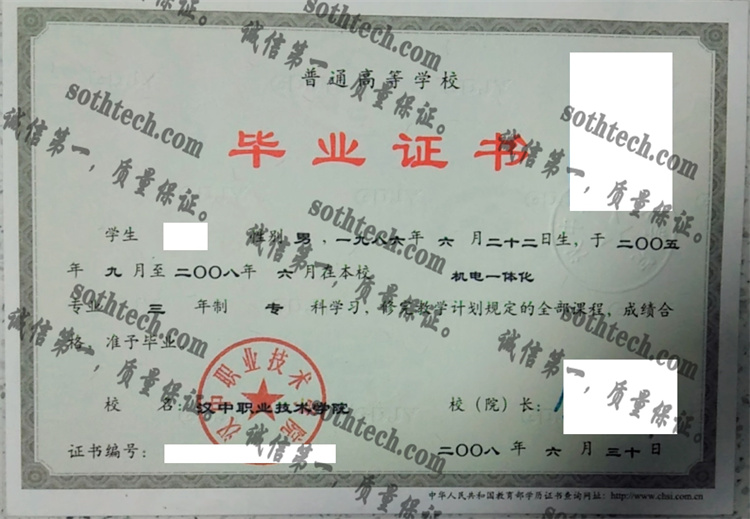 普通高等学校
毕业证书
学生 性别 男，一九八六年 六 月二十二日生，于 二〇〇五
年 九 月至二〇〇八年 六 月在本校 机电一体化
专业 三 年制 专 科学习，修完教学计划规定的全部课程，成绩合
格，准予毕业
校 名：汉中职业技术学院 校（院）长：
证书编号： 二〇〇八 年 六 月 三十 日
中华人民共和国教育部学历证书查询网址：http://www.chsi.com.cn
汉中职业技术学院
sothtech.com
诚信第一，质量保证。
sothtech.com
诚信第一，质量保证。
sothtech.com
诚信第一，质量保证。
sothtech.com
诚信第一，质量保证。
sothtech.com
诚信第一，质量保证。
sothtech.com
诚信第一，质量保证。
sothtech.com
诚信第一，质量保证。
sothtech.com
诚信第一，质量保证。
sothtech.com
诚信第一，质量保证。